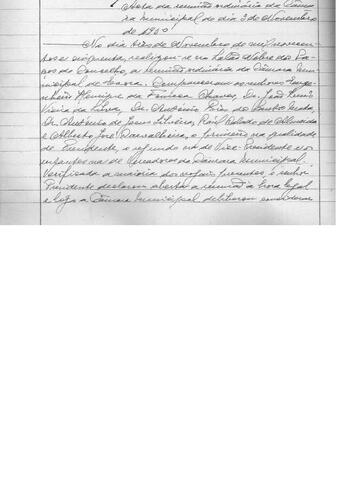 Acta da reunião ordinária da Câma-
ra Municipal do dia 3 de Novembro
de 19
No dia três de Novembro de mil novecen-
tos e cincoenta, realizou-se no Salão Nobre dos Pa-
ços do Concelho, a reunião ordinária da Câmara Mu-
nicipal de Évora. Compareceram os senhores Enge-
nheiro Henrique da Fonseca Chaves, Dr. João Luís
Vieira da Silva, Dr. António Pires do
Dr. António de Jesus Silveira, Raúl de Almeida
e Alberto José Carvalheira, o primeiro na qualidade
de Presidente, o segundo na de Vice-Presidente e os
restantes na de Vereadores da Câmara Municipal.
Verificada a maioria dos vogais presentes, o senhor
Presidente declarou aberta a reunião à hora legal
e logo a Câmara Municipal deliberou considerar